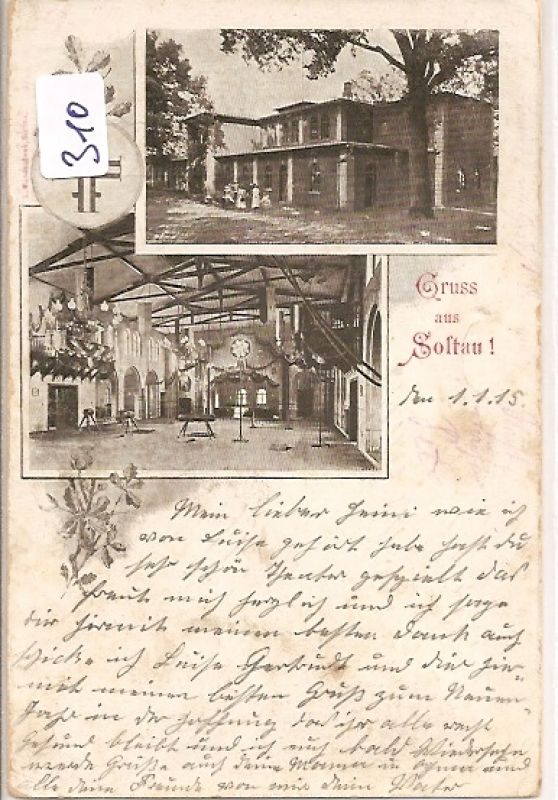 310
Gruss
aus
Soltau!
den 1.1.15.
Mein lieber Heini wie ich
von Luise gehört habe hast du
sehr schön Theater gespielt das
freut mich herzlich und ich sage
dir hiermit meinen besten Dank auch
schicke ich Luise Gertrudt und dir hier„
mit meinen besten Gruß zum Neuen„
Jahr in der Hoffnung das ihr alle recht
Gesund bleibt und ich euch bald Wiedersehn
werde Grüße auch deine Mama u Oma und
alle deine Freunde von mir dein Vater